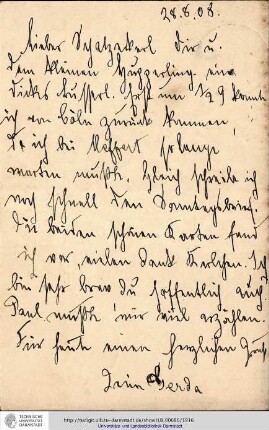 28.8.08.
Lieber Schatzckerl Dir u.
dem kleinen Hupperling ein
dickes Busserl. Erst um 1/2 9 konnte
ich von Cöln zurück kommen,
da ich bei so lange
warten mußte. Gleich schreibe ich
noch schnell den Sonntagsbrief.
Die beiden schönen Karten fand
ich vor, vielen Dank Kerlchen. Ich
bin sehr brav du hoffentlich auch
Paul mußte mir viel erzählen.
Für heute einen herzlichen Gruß
Deine Gerda
TECHNISCHE
UNIVERSITÄT
DARMSTADT
Universitäts- und Landesbibliothek Darmstadt